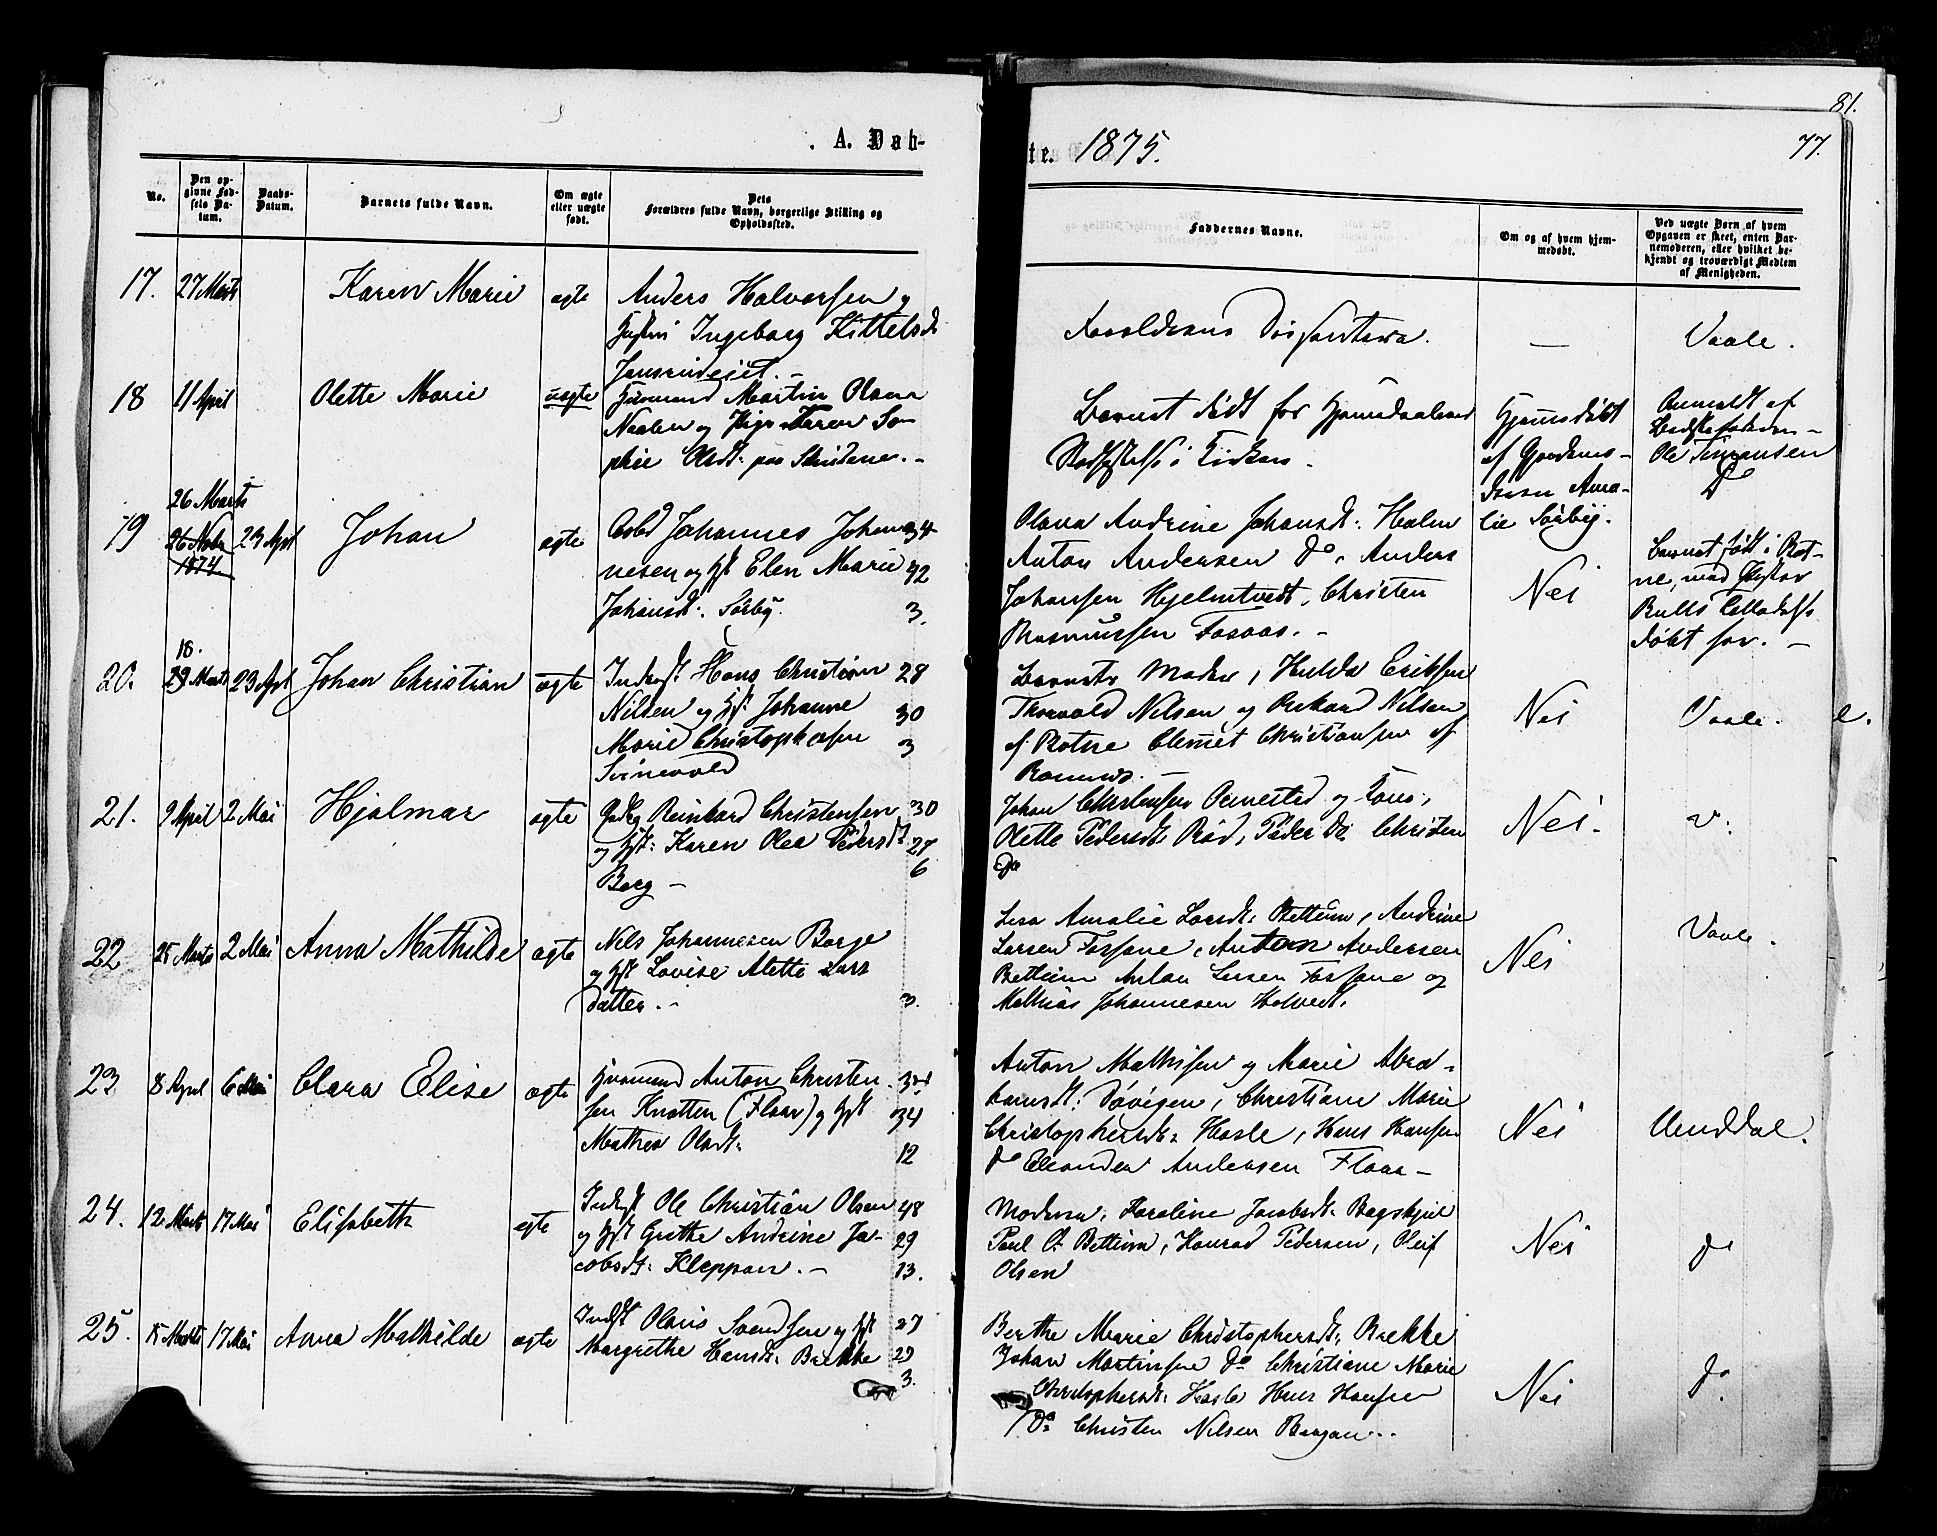 81.
A. Døb-
te. 1875.
77.
No.
Den op-
givne Fød-
sels Da-
tum.
Daabs-
Datum.
Barnets fulde Navn.
Om ægte
eller uægte
født.
Dets
Forældres fulde Navn, borgerlige Stilling og
Opholdssted.
Faddernes Navne.
Om og af hvem hjem-
medøbt.
Ved uægte Børn af hvem
Opgaven er skeet, enten Bar-
nemoderen, eller hvilket be-
kjendt og troværdigt Medlem
af Menigheden.
17. 27 Marts Karen Marie ægte Anders Halvorsen og
Ingeborg Kittelsd
Forældrene Dissentere. — Vaale.
18 11 April Olette Marie uægte Martin Olsen
og Pige Karen So-
phie Olsdt: paa
Barnet død for Hjemmedaabens
Stadfæstelse i Kirken.
Hjemmedøbt
af Gjordemo-
deren Ama-
lie Sørby.
Anmeldt af
Bedstefaderen
Ole
26 Marts
19 26 Novbr 23 Apl Johan ægte Johannes Johan- 34
1874 nesen og Elen Marie 42
Johansdt: Sørby. 3.
Olava Andrine Johansdt: Holm
Anton Andersen Do, Anders
Johansen Hjelmtvedt, Christen
Rasmussen Fossaas. -
Nei
Barnet født i Bot-
ne, med
døbt før. —
18.
20. 29 Marts 23 Apl Johan Christian ægte Inderst Hans Christian 28
Nilsen og Johanne 30
Marie Christophersen 3
Svinevold
Barnets Moder, Hulda Eriksen
Thorvald Nilsen og Nilsen
af Botne Clemet Christiansen af
Nei Vaale. e.
21. 9 April 2 Mai Hjalmar ægte Reinhard Christensen 30
og Karen Olea Pedersdt 27
Borg — 6
Johan Christensen og Kone,
Olette Pedersdt: Rød, Peder Do Christen
Do
Nei. v.
22 25 Marts 2 Mai Anna Mathilde ægte Nils Johannesen Borge
og Lovise Alette Lars
datter. - 3.
Amalie Larsdt: Bettum, Andrine
Larsen Fossane, Anton Andersen
Bettum Anton Larsen Fossane og
Mathias Johannesen Holvedt.
Nei Vaale.
23 8 April 6 Mai Clara Elise ægte Anton Christen- 34
sen Knatten (Flaar) og 34
Mathea Olsdt: 12
Anton Mathisen og Marie Abra-
hamsdt: Døvigen, Christiane Marie
Christophersdt: Hasle, Hans Hansen
Do Andersen Flaar —
Nei Unddal.
24. 12 Marts 17 Mai Elisabeth ægte Inderst Ole Christian Olsen 48
og Grethe Andrine Ja- 29
cobsdt: Kleppan. — 13.
Moderen, Karoline Jacobsdt: Bagskjul
Paul O. Bettum, Konrad Pedersen,
Olsen
Nei do
25. 15 Marts 17 Mai Anna Mathilde ægte Olaus Svendsen og 27
Margrethe Hansdt: Bække 29
3.
Berthe Marie Christophersdt: Bække
Johan Martinsen Do Christiane Marie
Christophersdt: Hasle Hans Hansen
Do Christen Nilsen
Nei do